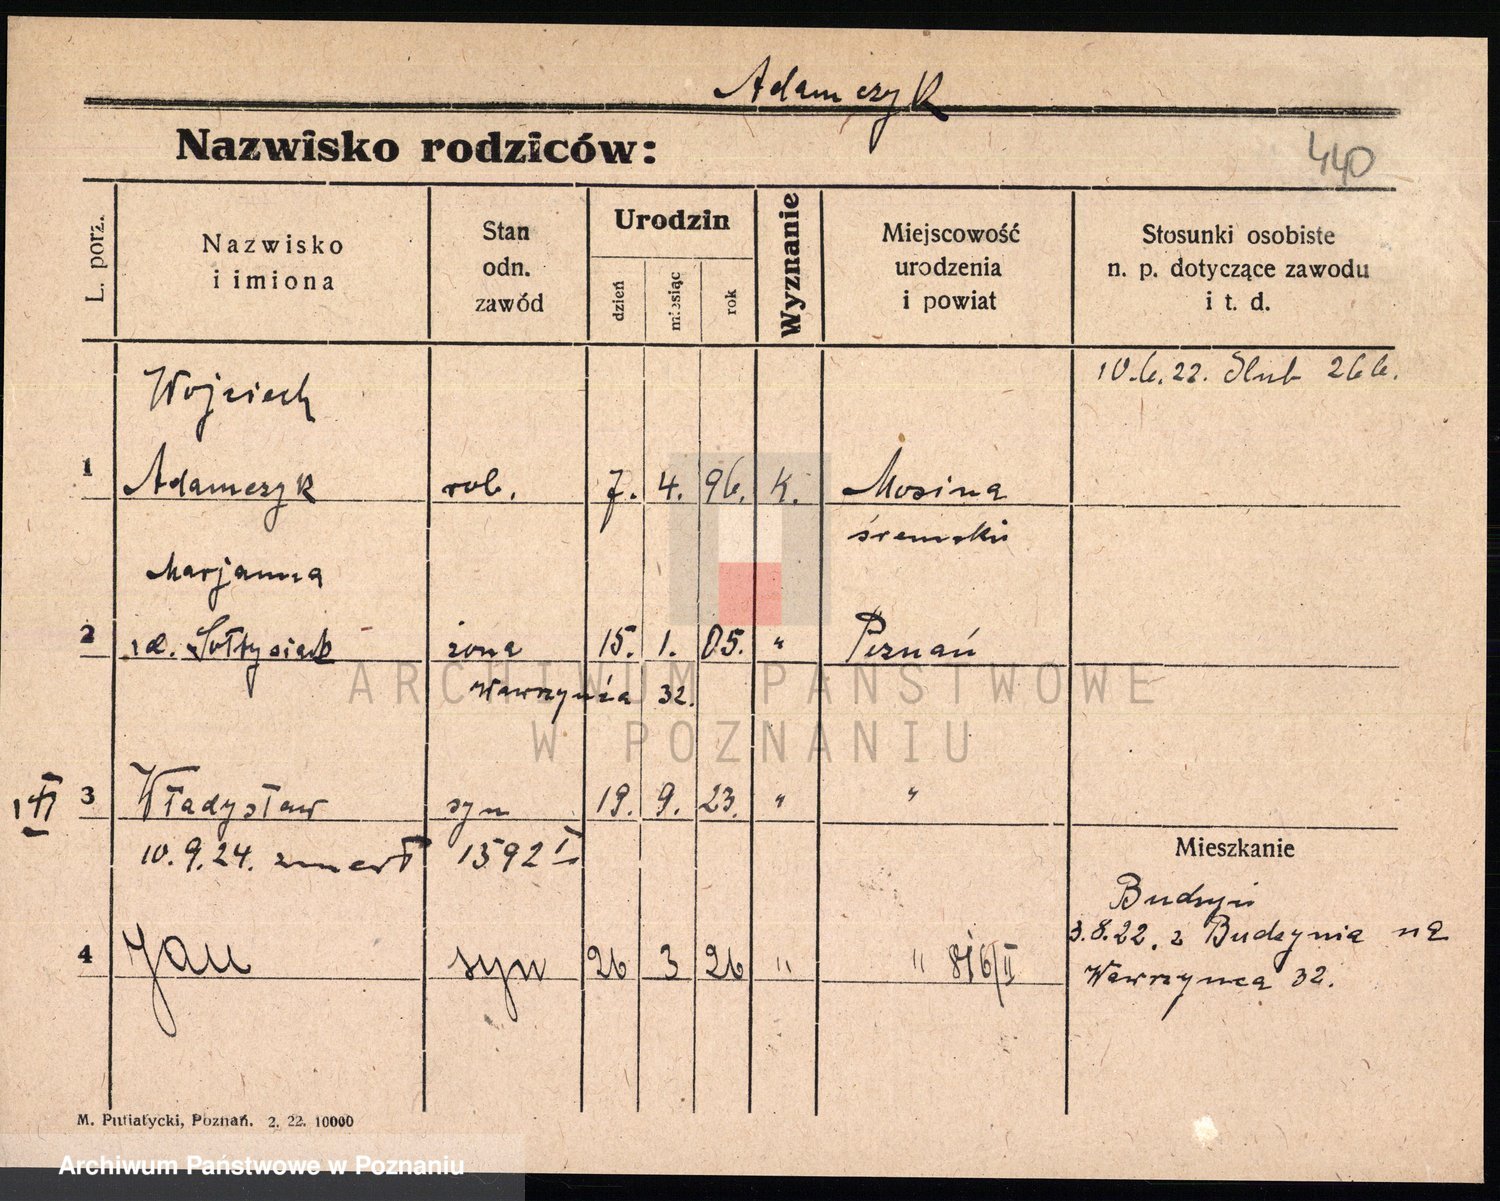 Adamczyk
Nazwisko rodziców:
440
L. porz.
Nazwisko
i imiona
Stan
odn.
zawód
Urodzin
dzień
miesiąc
rok
Wyznanie
Miejscowość
urodzenia
i powiat
Stosunki osobiste
n. p. dotyczące zawodu
i t. d.
10.6.22. Ślub 266.
Wojciech
1 Adamczyk rob. 7. 4. 96. K. Mosina
śremski
Marjanna
2 Sołtysiak żona 15. 1. 05. " Poznań
Wawrzyńca 32.
3 Władysław syn 19. 9. 23. " "
10.9.24. zmarł 1592 I
Mieszkanie
Budzyń
4 Jan syn 26 3 26 " " 816/II
3.8.22. z Budzynia na
Wawrzynca 32.
M. Putiatycki, Poznań. 2. 22. 10000
ARCHIWUM PAŃSTWOWE
W POZNANIU
Archiwum Państwowe w Poznaniu